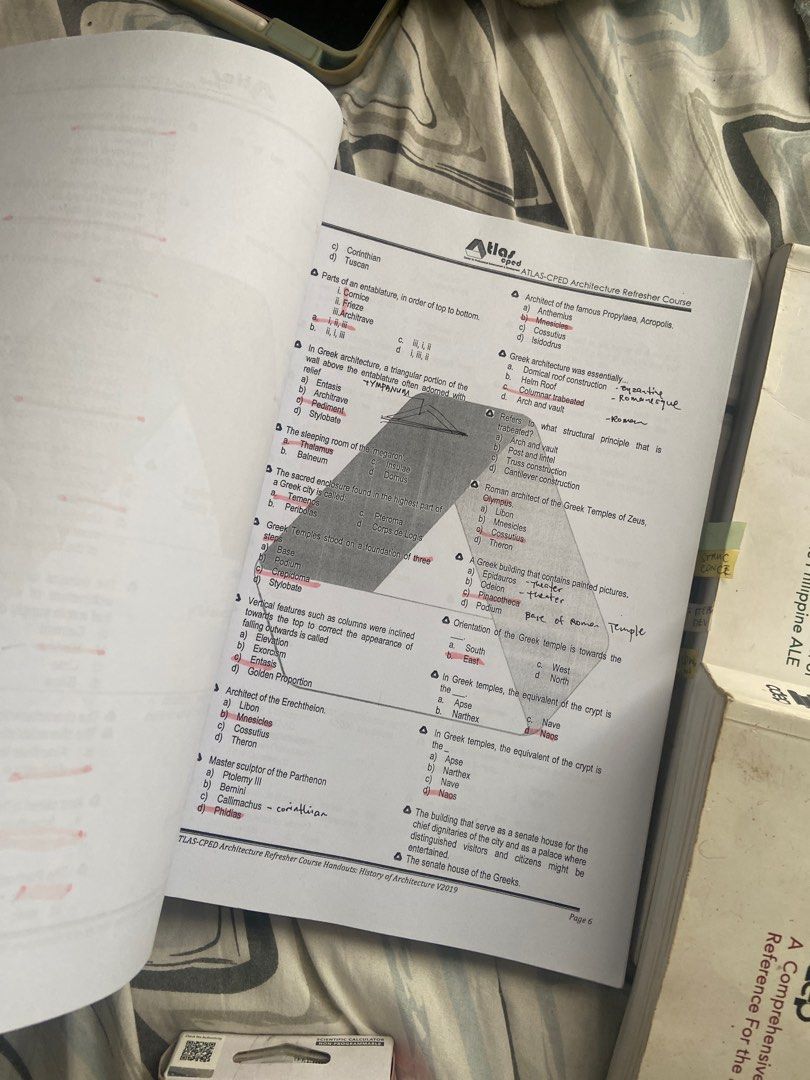 Atlas
cped
ATLAS-CPED Architecture Refresher Course
c) Corinthian
d) Tuscan
Parts of an entablature, in order of top to bottom.
i. Cornice
ii. Frieze
iii. Architrave
a. i, ii, iii
b. ii, i, iii
c. iii, i, ii
d i, iii, ii
In Greek architecture, a triangular portion of the
wall above the entablature often adorned with
relief
TYMPANUM
a) Entasis
b) Architrave
c) Pediment
d) Stylobate
The sleeping room of the megaron.
a. Thalamus
b. Balneum
c. Insulae
d Domus
The sacred enclosure found in the highest part of
a Greek city is called:
a. Temenos
b. Peribolas
c. Pteroma
d Corps de Logis
Greek Temples stood on a foundation of three
steps
a) Base
b) Podium
c) Crepidoma
d) Stylobate
Vertical features such as columns were inclined
towards the top to correct the appearance of
falling outwards is called
a) Elevation
b) Exorcism
c) Entasis
d) Golden Proportion
Architect of the Erechtheion.
a) Libon
b) Mnesicles
c) Cossutius
d) Theron
Master sculptor of the Parthenon
a) Ptolemy III
b) Bernini
c) Callimachus - corinthian
d) Phidias
Architect of the famous Propylaea, Acropolis.
a) Anthemius
b) Mnesicles
c) Cossutius
d) Isidodrus
Greek architecture was essentially
a. Domical roof construction - Byzantine
b. Helm Roof - Romanesque
c. Columnar trabeated
d. Arch and vault - Roman
Refers to what structural principle that is
trabeated?
a) Arch and vault
b) Post and lintel
c) Truss construction
d) Cantilever construction
Roman architect of the Greek Temples of Zeus,
Olympus.
a) Libon
b) Mnesicles
c) Cossutius
d) Theron
A Greek building that contains painted pictures.
a) Epidauros - theater
b) Odeion - theater
c) Pinacotheca
d) Podium Base of Roman Temple
Orientation of the Greek temple is towards the
a. South
b. East
c. West
d North
In Greek temples, the equivalent of the crypt is
the __.
a. Apse
b. Narthex
c. Nave
d Naos
In Greek temples, the equivalent of the crypt is
the_
a) Apse
b) Narthex
c) Nave
d) Naos
The building that serve as a senate house for the
chief dignitaries of the city and as a palace where
distinguished visitors and citizens might be
entertained.
The senate house of the Greeks.
TLAS-CPED Architecture Refresher Course Handouts: History of Architecture V2019
Page 6
Philippine ALE
A Comprehensive
Reference For the
SCIENTIFIC CALCULATOR
NON PROGRAMMABLE